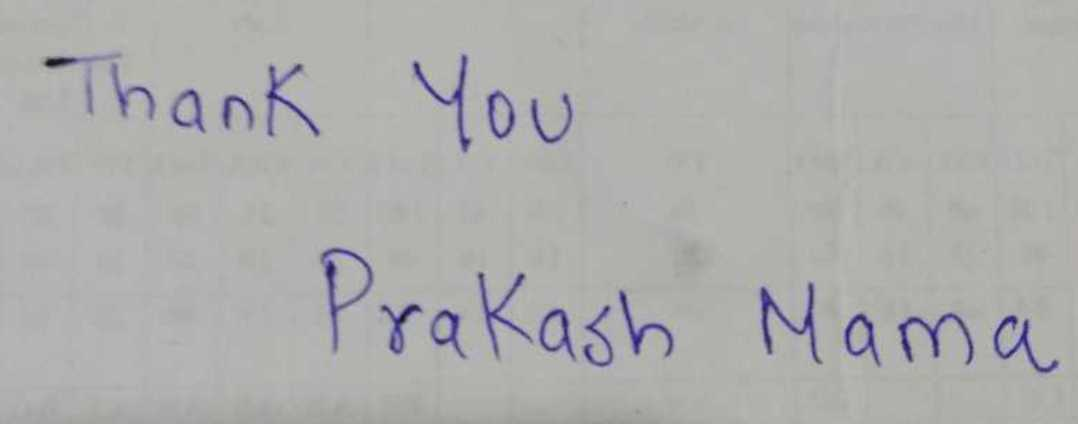 Thank You
Prakash Mama